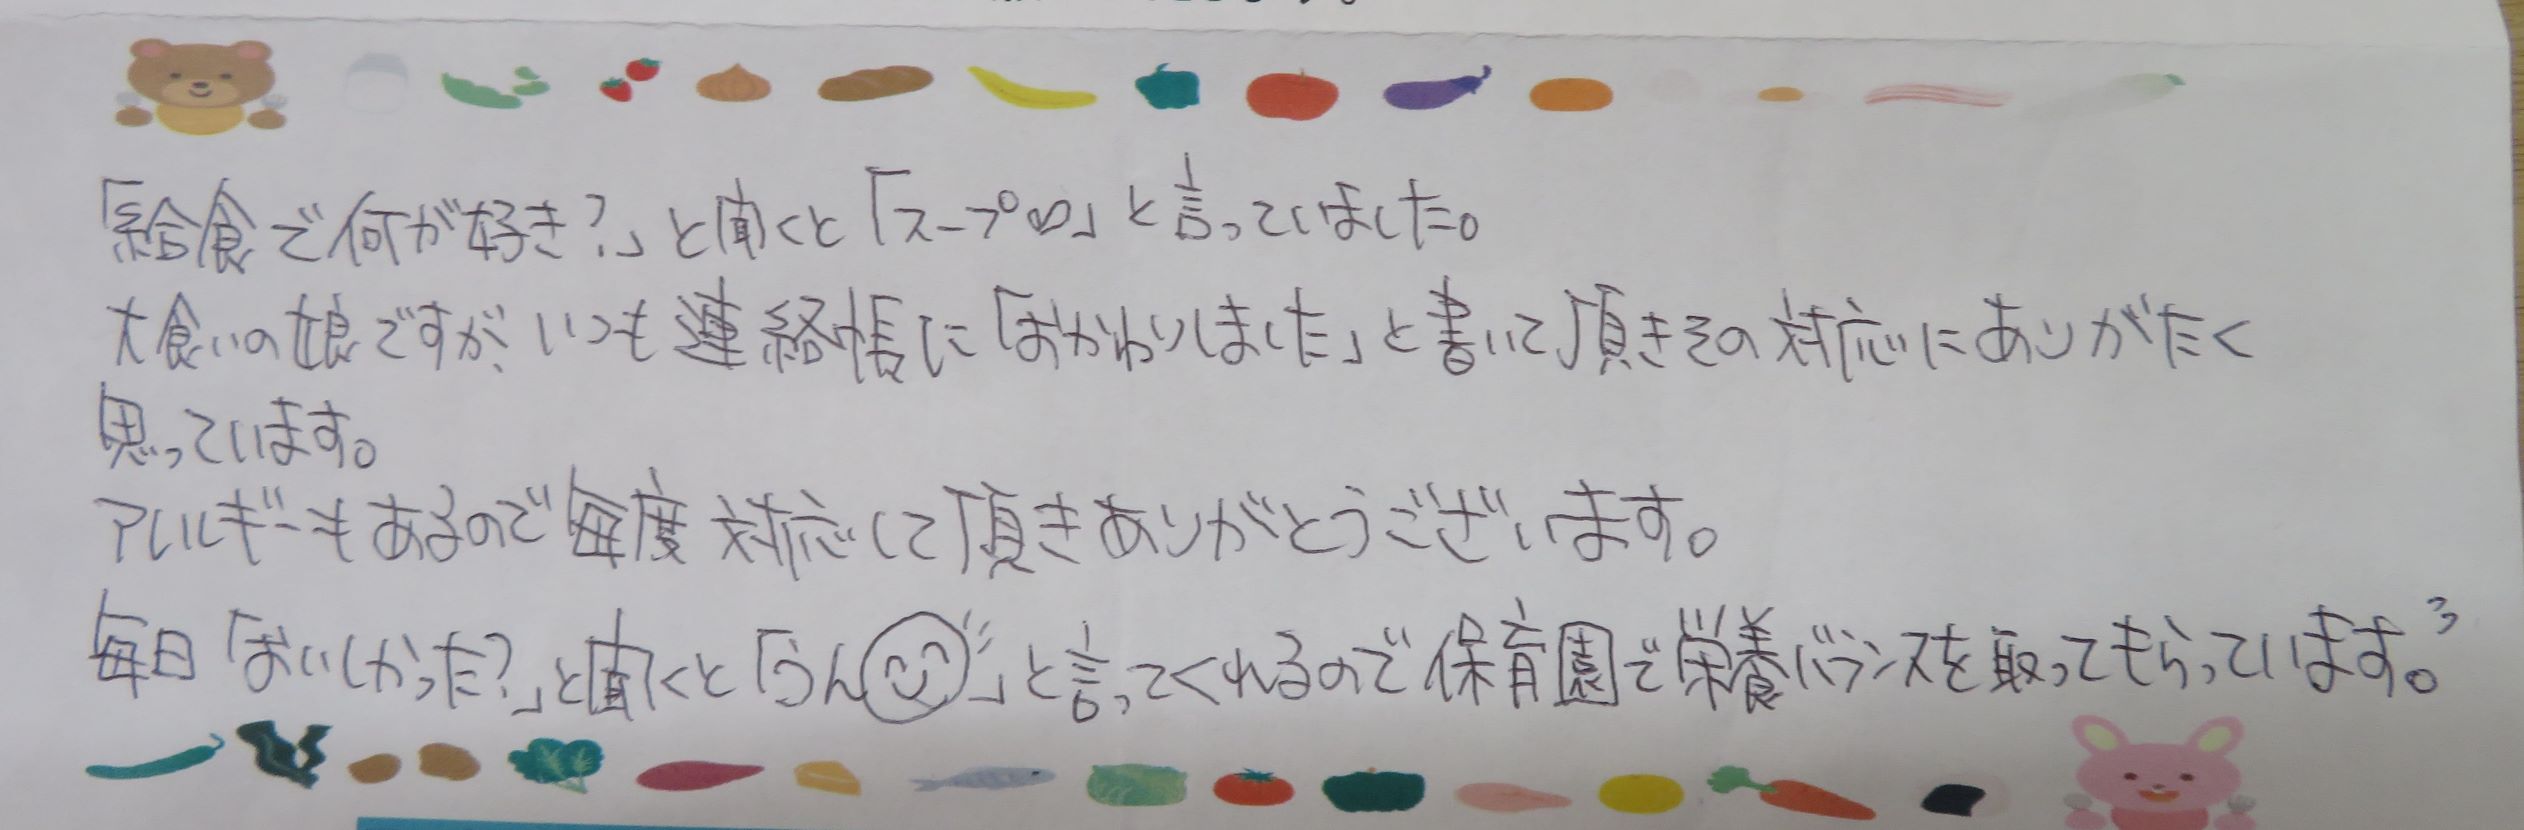 「給食で何が好き?」と聞くと「スープ♡」と言っていました。
大食いの娘ですが、いつも連絡帳に「おかわりしました」と書いて頂きその対応にありがたく
思っています。
アレルギーもあるので毎度対応して頂きありがとうございます。
毎日「おいしかった?」と聞くと「うん😊」と言ってくれるので保育園で栄養バランスを取ってもらっています。